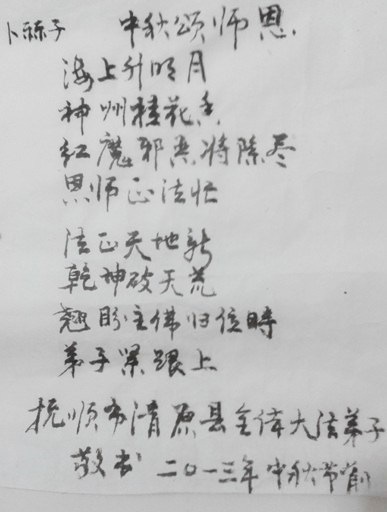 卜祘子 中秋颂师恩
海上升明月
神州桂花香
红魔邪恶将除尽
恩师正法忙
法正天地新
乾坤破天荒
翘盼主佛归位時
弟子紧跟上
抚顺市清原县全体大法弟子
敬书 二〇一三年中秋节前